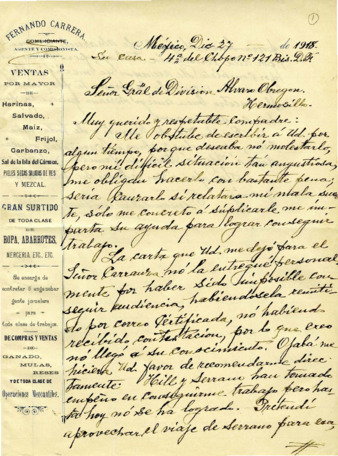 1
FERNANDO CARRERA.
COMERCIANTE,
AGENTE Y COMISIONISTA.
VENTAS
POR MAYOR
DE
Harinas,
Salvado,
Maiz,
Frijol,
Garbanzo,
Sal de la Isla del Cármen,
PIELES SECAS SALADAS DE RES
Y MEZCAL.
GRAN SURTIDO
DE TODA CLASE
DE
ROPA, ABARROTES,
MERCERIA, ETC. ETC.
Me encargo de
contratar ó enganchar
gente jornalera
para
toda clase de trabajos.
DE COMPRAS Y VENTAS
DE
GANADO,
MULAS,
RESES
Y DE TODA CLASE DE
Operaciones Mercantiles.
México, Dic 27 de 1918.
Su casa. 4ª del Chopo Nº 121 Bis. D.F.
Señor Gräl de División Alvaro Obregon.
Hermosillo.
Muy querido y respetable compadre:
Me abstube de escribir á Ud. por
algun tiempo, por que deseaba no molestarlo,
pero mi dificil situación tan angustiosa,
me obligan hacerlo con bastante pena;
seria causarlo si relatara mi mala suer
te, solo me concreto á suplicarle, me im
parta su ayuda para lograr conseguir
trabajo.
La carta que Ud. me dejó para el
Señor Carranza no la entregué personal
mente por haber sido imposible con
seguir audiencia, habiendosela remiti
do por correo Certificada, no habiendo
recibido contestacion, por lo que creo
no llegó a su conocimiento. Ojalá me
hiciera Ud. favor de recomendarme direc
tamente Hill y Serrano han tomado
empeño en conseguirme trabajo pero has
ta hoy no se ha logrado. Pretendí
aprovechar el viaje de Serrano para esa,